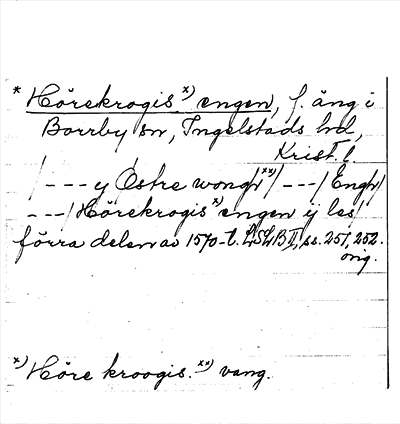 * Hörekrogis x) engen, f. äng i
Borrby sn, Ingelstads hd,
Krist. l.
/---y Østre wongr xx)/---/Engr/
---/Hörekrogis x) engen ij les/
förra delen av 1570-t. LSLB II, ss. 251, 252.
orig.
x) Höre kroogis. xx) vang.